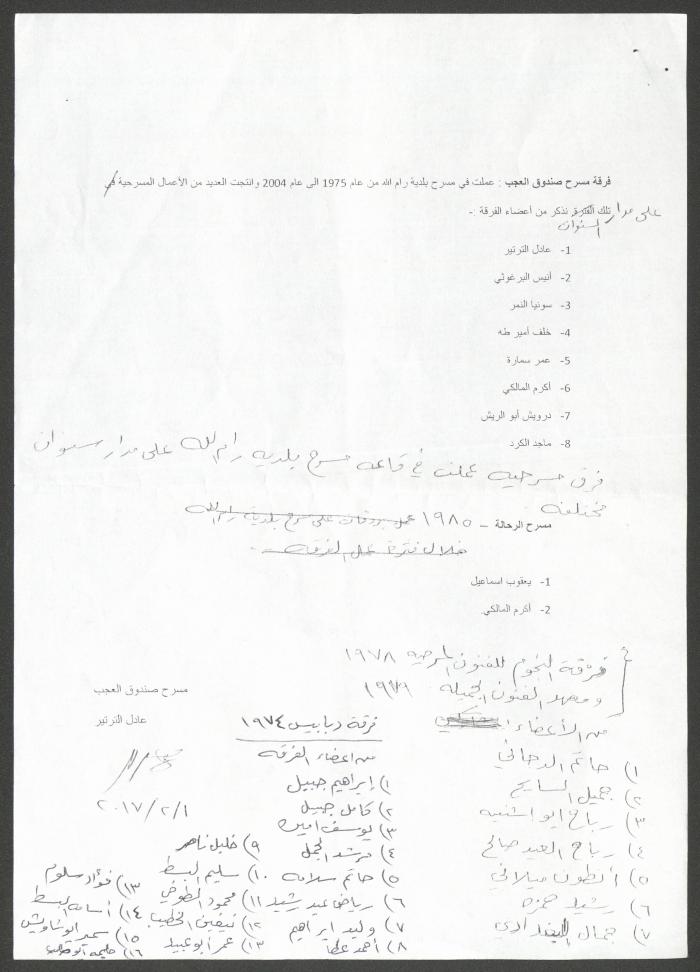 فرقة مسرح صندوق العجب : عملت في مسرح بلدية رام الله من عام 1975 الى عام 2004 وانتجت العديد من الأعمال المسرحية في
على مدار تلك الفترة نذكر من أعضاء الفرقة :-
السنوات
1- عادل الترتير
2- أنيس البرغوثي
3- سونيا النمر
4- خلف أمير طه
5- عمر سمارة
6- أكرم المالكي
7- درويش أبو الريش
8- ماجد الكرد
فرق مسرحيه عملت في قاعه مسرح بلديه رام الله على مدار سنوات
مختلفه
مسرح الرحالة – ١٩٨٥ على مسرح بلدية رام الله
خلال فترة عمل الفرقة .
1- يعقوب اسماعيل
2- أكرم المالكي
فرقة النجوم للفنون المسرحيه ١٩٧٨
ومعهد الفنون الجميله ١٩٧٩
من الأعضاء
١) حاتم الدجاني
٢) جميل السايح
٣) رباح ابو اشنيه
٤) رباح العبد صالح
٥) أنطون ميلاني
٦) رشيد حمزه
٧) جمال البغدادي
فرقة دبابيس ١٩٧٤
من اعضاء الفرقه
١) إبراهيم جبيل
٢) كامل جبيل
٣) يوسف امين
٤) مرشد الجمل
٥) حاتم سلامه
٦) رياض عبد رشيد
٧) وليد ابراهيم
٨) أحمد عطا
٩) خليل ناصر
١٠) سليم البسط
١١) محمود الطوخي
١٢) الخطيب
١٣) عمر أبو عبيد
١٣) فؤاد سلوم
١٤) أسامه البسط
١٥) سمير ابو شاويش
١٦)
مسرح صندوق العجب
عادل الترتير
٢٠١٧/٢/١